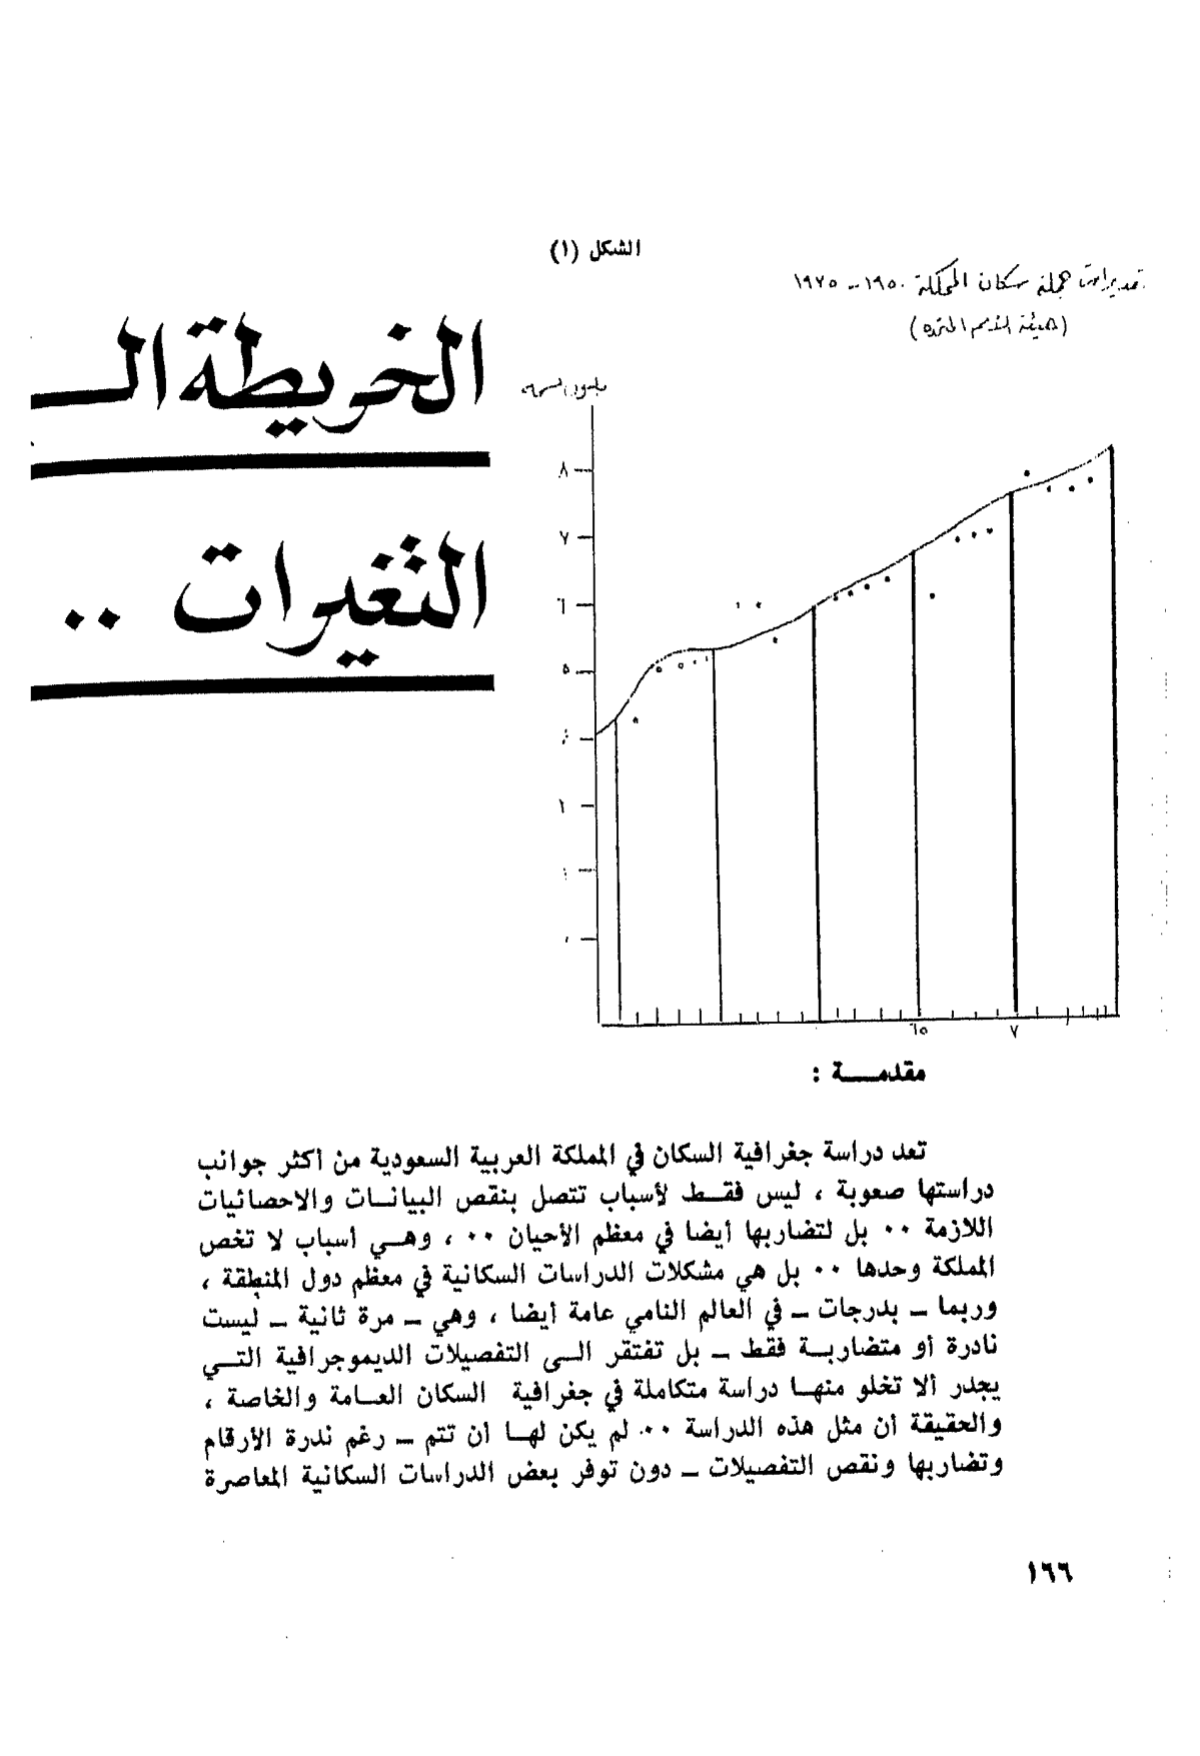 الشكل (١)
تقديرات جملة سكان المملكة ١٩٥٠ - ١٩٧٥
(هيئة الأمم المتحدة)
الخريطة الـ
التغيرات ..
٨
٧
٦
٥
٦٥
٧
مقدمــة :
تعد دراسة جغرافية السكان في المملكة العربية السعودية من اكثر جوانب
دراستها صعوبة ، ليس فقـط لأسباب تتصل بنقص البيانـات والاحصائيات
اللازمة ٠٠ بل لتضاربها أيضا في معظم الأحيان ٠٠ ، وهـي أسباب لا تخص
المملكة وحدها ٠٠ بل هي مشكلات الدراسات السكانية في معظم دول المنطقة ،
وربما ـ بدرجات ـ في العالم النامي عامة أيضا ، وهي ـ مرة ثانية ـ ليست
نادرة أو متضاربـة فقط ـ بل تفتقر الـى التفصيلات الديموجرافية التـي
يجدر ألا تخلو منهـا دراسة متكاملة في جغرافية السكان العـامة والخاصة ،
والحقيقة أن مثل هذه الدراسة ٠٠ لم يكن لهـا أن تتم ـ رغم ندرة الأرقام
وتضاربها ونقص التفصيلات ـ دون توفر بعض الدراسات السكانية المعاصرة
١٦٦